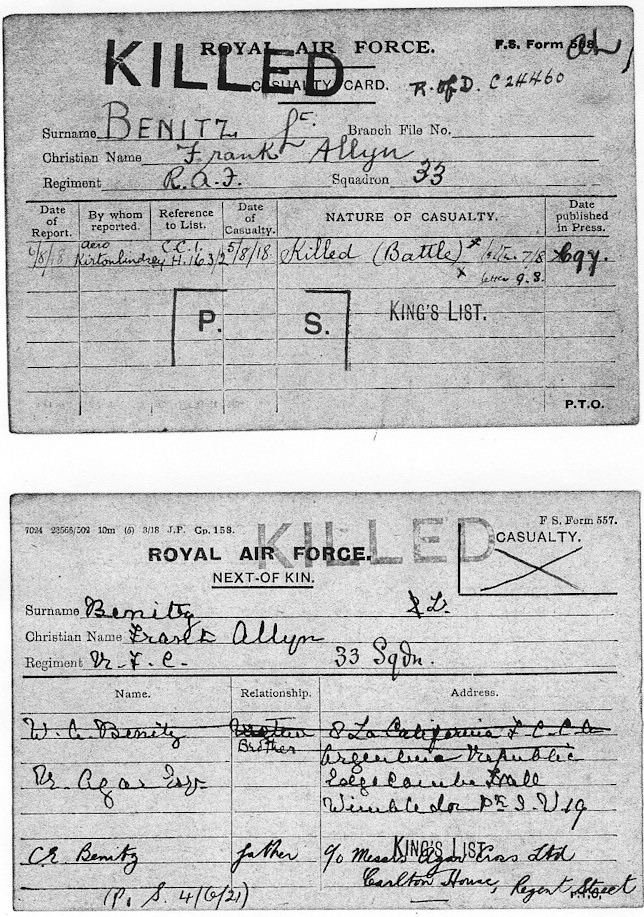 KILLED
ROYAL AIR FORCE.
F.S. Form 558.
CASUALTY CARD.
R. of D. C 24460
Surname BENITZ Lt. Branch File No.
Christian Name Frank Allyn
Regiment R.A.F. Squadron 33
Date of Report. By whom reported. Reference to List. Date of Casualty. NATURE OF CASUALTY. Date published in Press.
6/8/18 Aero Kirtonlindsey C.C.1. H.1632 5/8/18 Killed (Battle) 7/8
letter 9.8.
P. S. KING'S LIST.
P.T.O.
7024 23565/502 10m (5) 3/18 J.P. Gp. 158.
KILLED
F S. Form 557.
CASUALTY.
ROYAL AIR FORCE.
NEXT-OF KIN.
Surname Benitz Lt.
Christian Name Frank Allyn
Regiment R.F.C. 33 Sqdn.
Name. Relationship. Address.
W. A. Benitz Brother La California F.C.C.A
Argentine Republic
R. Agar Esq. Edgecombe Hall
Wimbledon Pk S.W 19
KING'S LIST.
C.E. Benitz father c/o Messrs Agar Cross Ltd
Carlton House, Regent Street
(P. S. 4/6/21)
P.T.O.